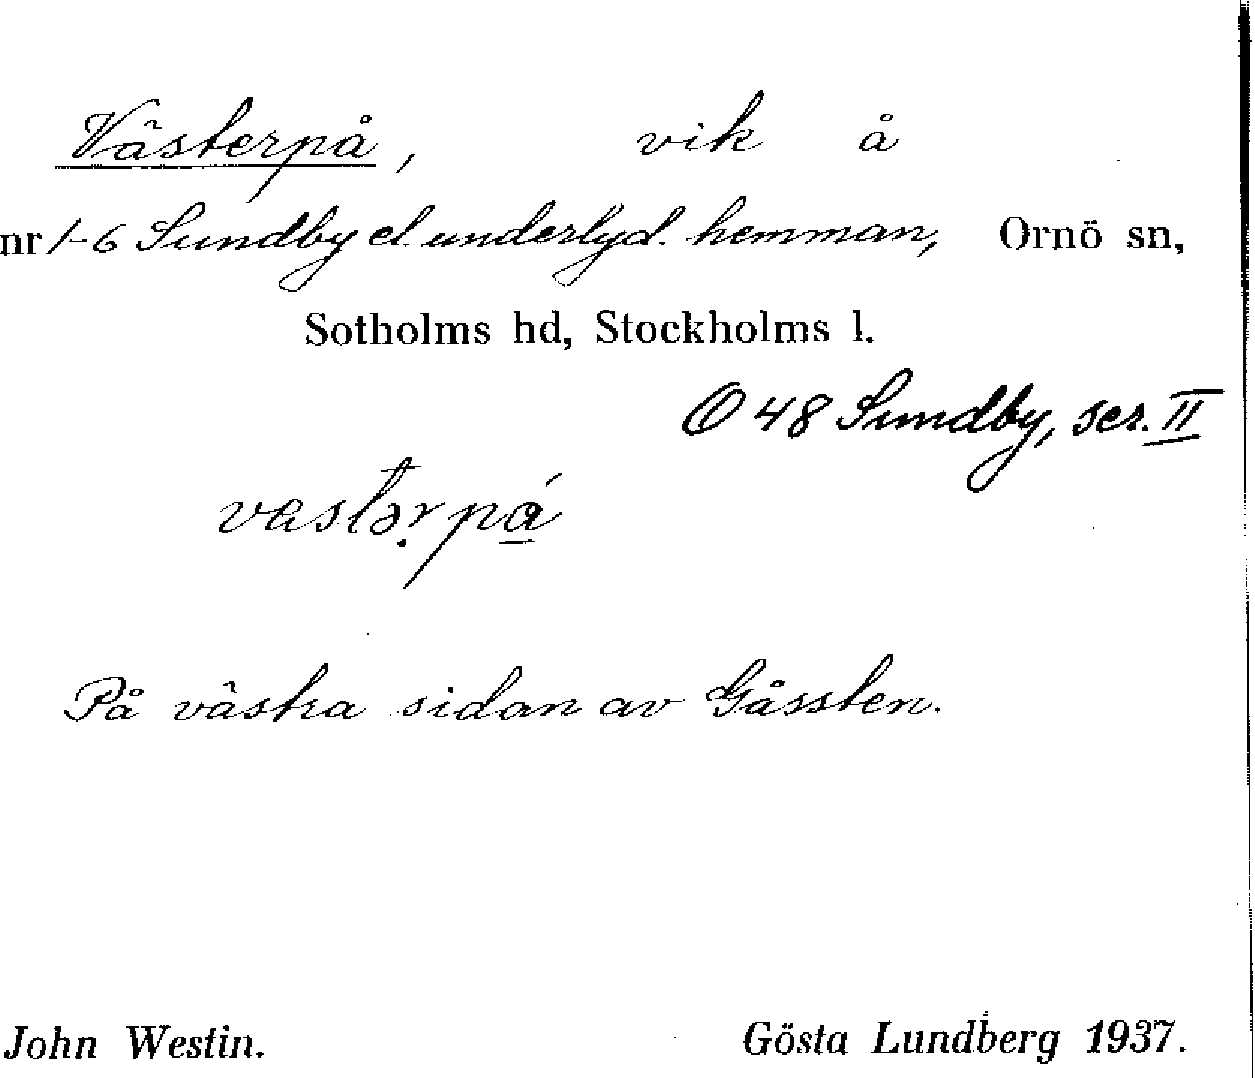 Västerpå, vik å
nr 1-6 Sundby el. underlyd. hemman, Ornö sn,
Sotholms hd, Stockholms l.
O 48 Sundby, ser. II
På västra sidan av Gåssten.
John Westin. Gösta Lundberg 1937.